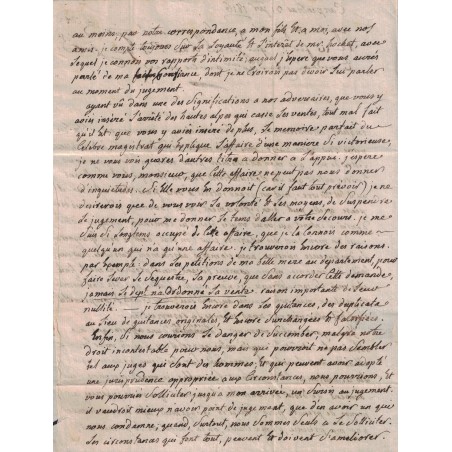 au moins, par notre correspondance, a mon fils et a moi, avec nos
amis. je compte toujours sur la loyauté et l'interêt de mr. hochet, avec
lequel je connois vos rapports d'intimité; auquel j'espere que vous aurés
parlé de ma confiance, dont je ne croirois pas devoir lui parler
au moment du jugement.
ayant vû dans une des significations a nos adversaires, que vous y
aviés inséré l'arrêté des hautes alpes qui casse les ventes, tout mal fait
qu'il est; que vous y aviés inséré de plus, le memoire parfait du
celebre magistrat qui explique l'affaire d'une maniere si victorieuse,
je ne vois gueres d'autres titres a donner a l'appui. j'espère
comme vous, monsieur, que cette affaire ne peut pas nous donner
d'inquietudes. Si elle vous en donnoit (car il faut tout prevoir) je ne
desirerois que de vous voir la volonté et les moyens, de suspendre
le jugement, pour me donner le tems d'aller a votre secours. je me
suis si longtems occupé de cette affaire, que je la connois comme
quelqu'un qui n'a qu'une affaire. j'y trouverois encore des raisons.
par exemple: dans les petitions de ma belle mere au departement, pour
faire lever le sequestre, la preuve, que sans accorder cette demande
jamais le dept. n'a ordonné la vente. raison importante de leur
nullité. j'y trouverois encore dans les quitances, des duplicata
au lieu de quitances originales, et encore surchargées et falsifiées.
Enfin, si nous courions le danger de succomber, malgré notre
droit incontestable pour nous, mais qui pourroit ne pas sembler
tel aux juges qui sont des hommes, et qui peuvent avoir adopté
une jurisprudence appropriée aux circonstances, nous pourrions, et
vous pourriés solliciter, jusqu'a mon arrivée, un sursis au jugement.
il vaudroit mieux n'avoir point de jugement, que d'en avoir un que
nous condamne, quand, surtout, nous sommes seuls a le solliciter.
les circonstances qui font tout, peuvent et doivent s'ameliorer.